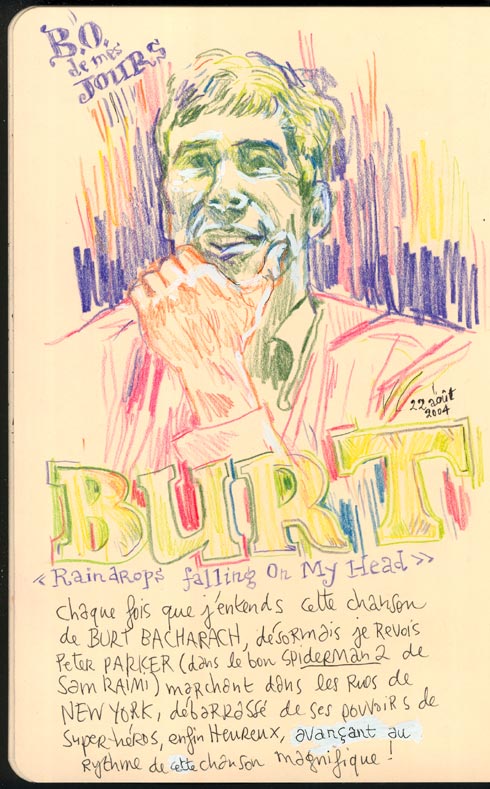 B.O.
de mes
JOURS
22 août
2004
BURT
« Raindrops falling On My Head »
Chaque fois que j'entends cette chanson
de BURT BACHARACH, désormais je Revois
Peter PARKER (dans le bon SpideRMan 2 de
Sam RAIMI) marchant dans les Rues de
NEW YORK, débarrassé de ses pouvoirs de
Super-héros, enfin Heureux, avançant au
Rythme de cette chanson magnifique !